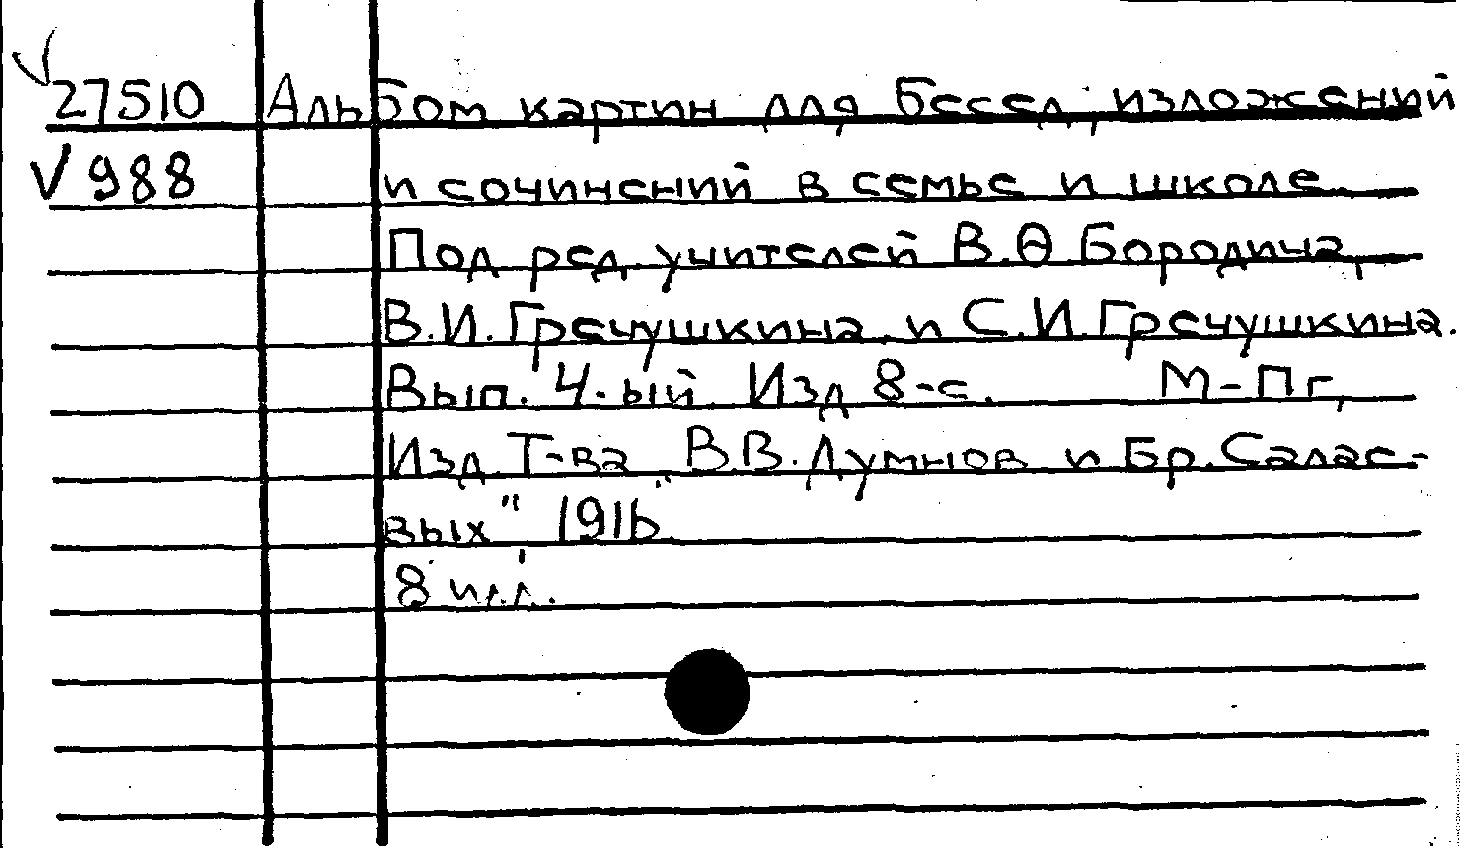 27510 Альбом картин для бесед, изложений
V 988 и сочинений в семье и школе.
Под ред. учителей В.Ѳ Бородина,
В.И. Гречушкина и С.И. Гречушкина.
Вып. 4-ый. Изд 8-е. М-Пг,
Изд. Т-ва "В.В. Думнов и Бр. Салае-
вых", 1916.
8 илл.